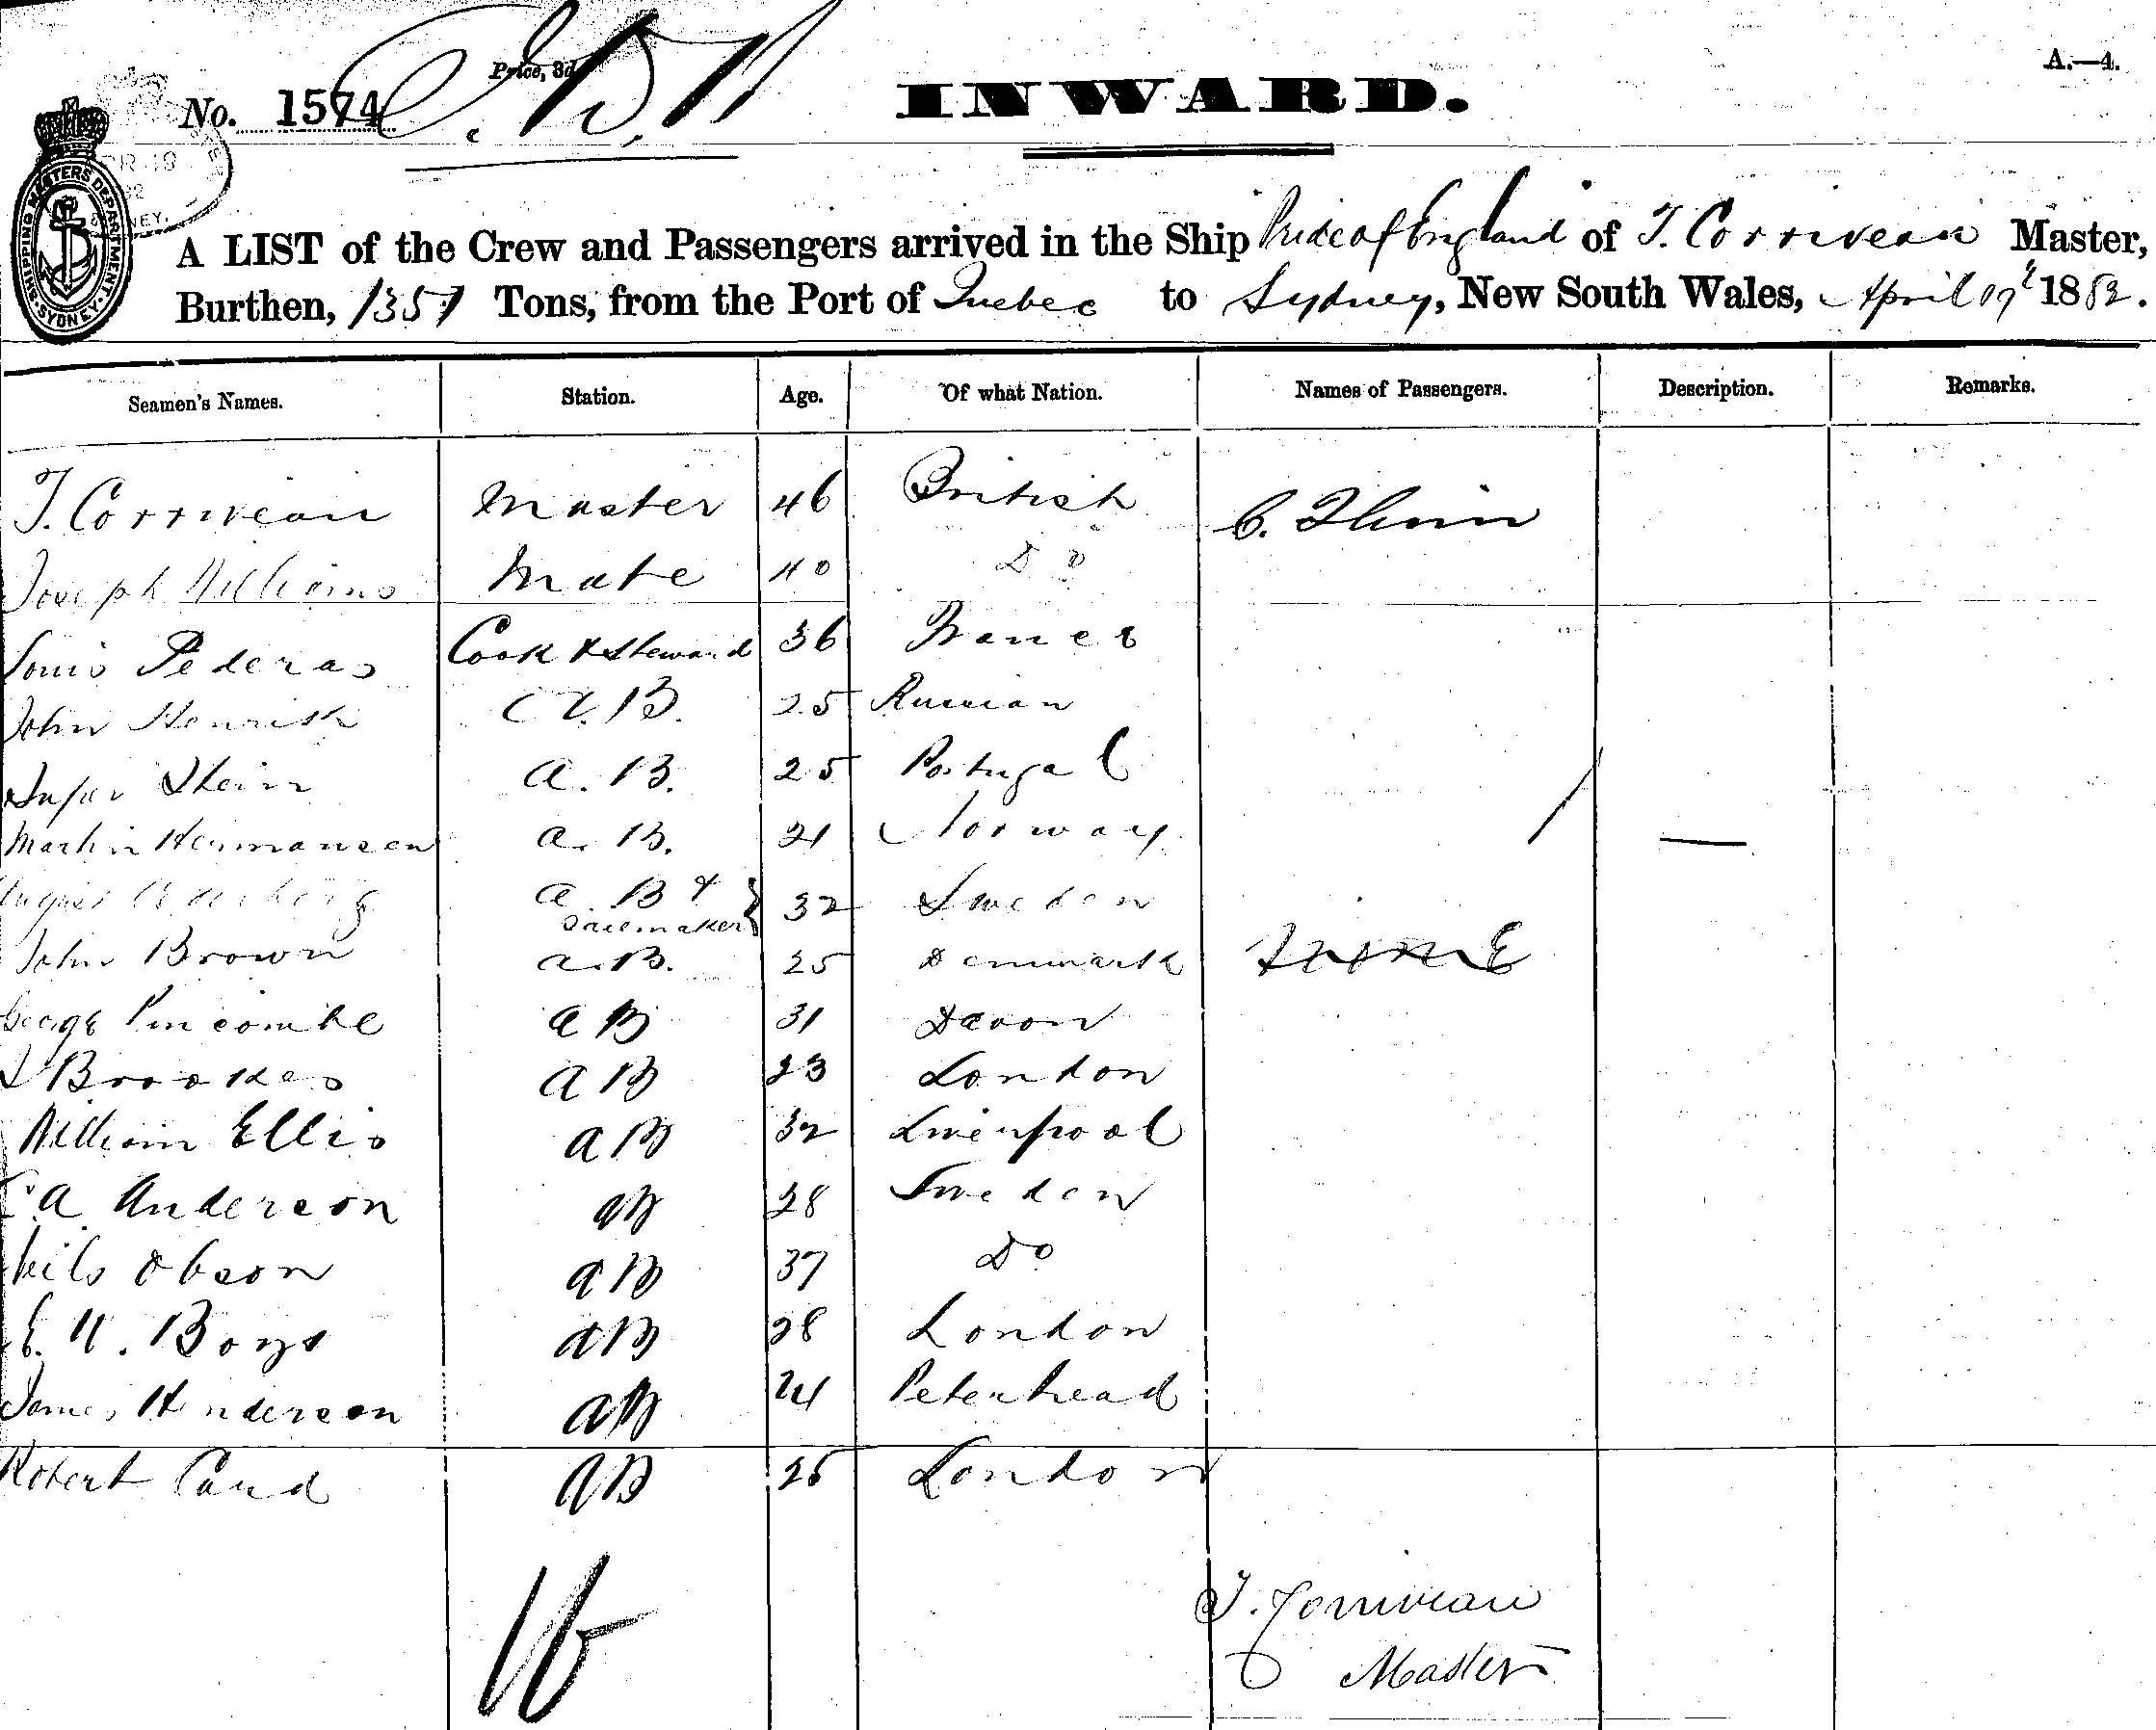 Price, 3d.
A.—4.
No. 1574
INWARD.
SHIPPING MASTERS DEPARTMENT. SYDNEY.
A LIST of the Crew and Passengers arrived in the Ship Pride of England of T. Corriveau Master,
Burthen, 1357 Tons, from the Port of Quebec to Sydney, New South Wales, April 19th 1882.
Seamen's Names. Station. Age. Of what Nation. Names of Passengers. Description. Remarks.
T. Corriveau Master 46 British
Joseph Williams Mate 40 Do
Louis Pederas Cook & Steward 36 France
John A.B. 25 Russian
A.B. 25 Portugal
Martin Hermansen A.B. 21 Norway
August A.B & Sailmaker 32 Sweden
John Brown A.B. 25 Denmark
George Pincombe AB 31 Devon
Brookes AB 23 London
William Ellis AB 32 Liverpool
A Anderson AB 28 Sweden
AB 37 Do
Boys AB 28 London
James Henderson AB 24 Peterhead
Robert AB 25 London
16
T. Corriveau
Master